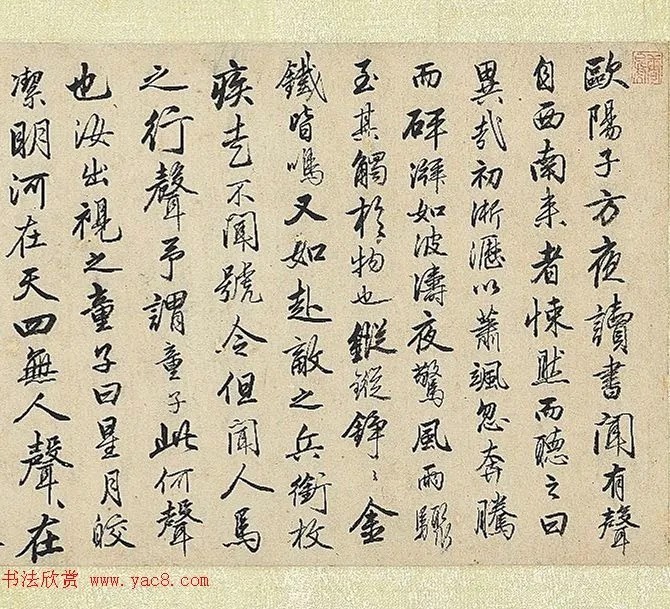 歐陽子方夜讀書聞有聲
自西南来者悚然而聽之曰
異哉初淅瀝以蕭颯忽奔騰
而砰湃如波濤夜驚風雨驟
至其觸於物也鏦鏦錚〻金
鐵皆鳴又如赴敵之兵銜枚
疾走不聞號令但聞人馬
之行聲予謂童子此何聲
也汝出視之童子曰星月皎
潔明河在天四無人聲〻在
书法欣赏 www.yac8.com